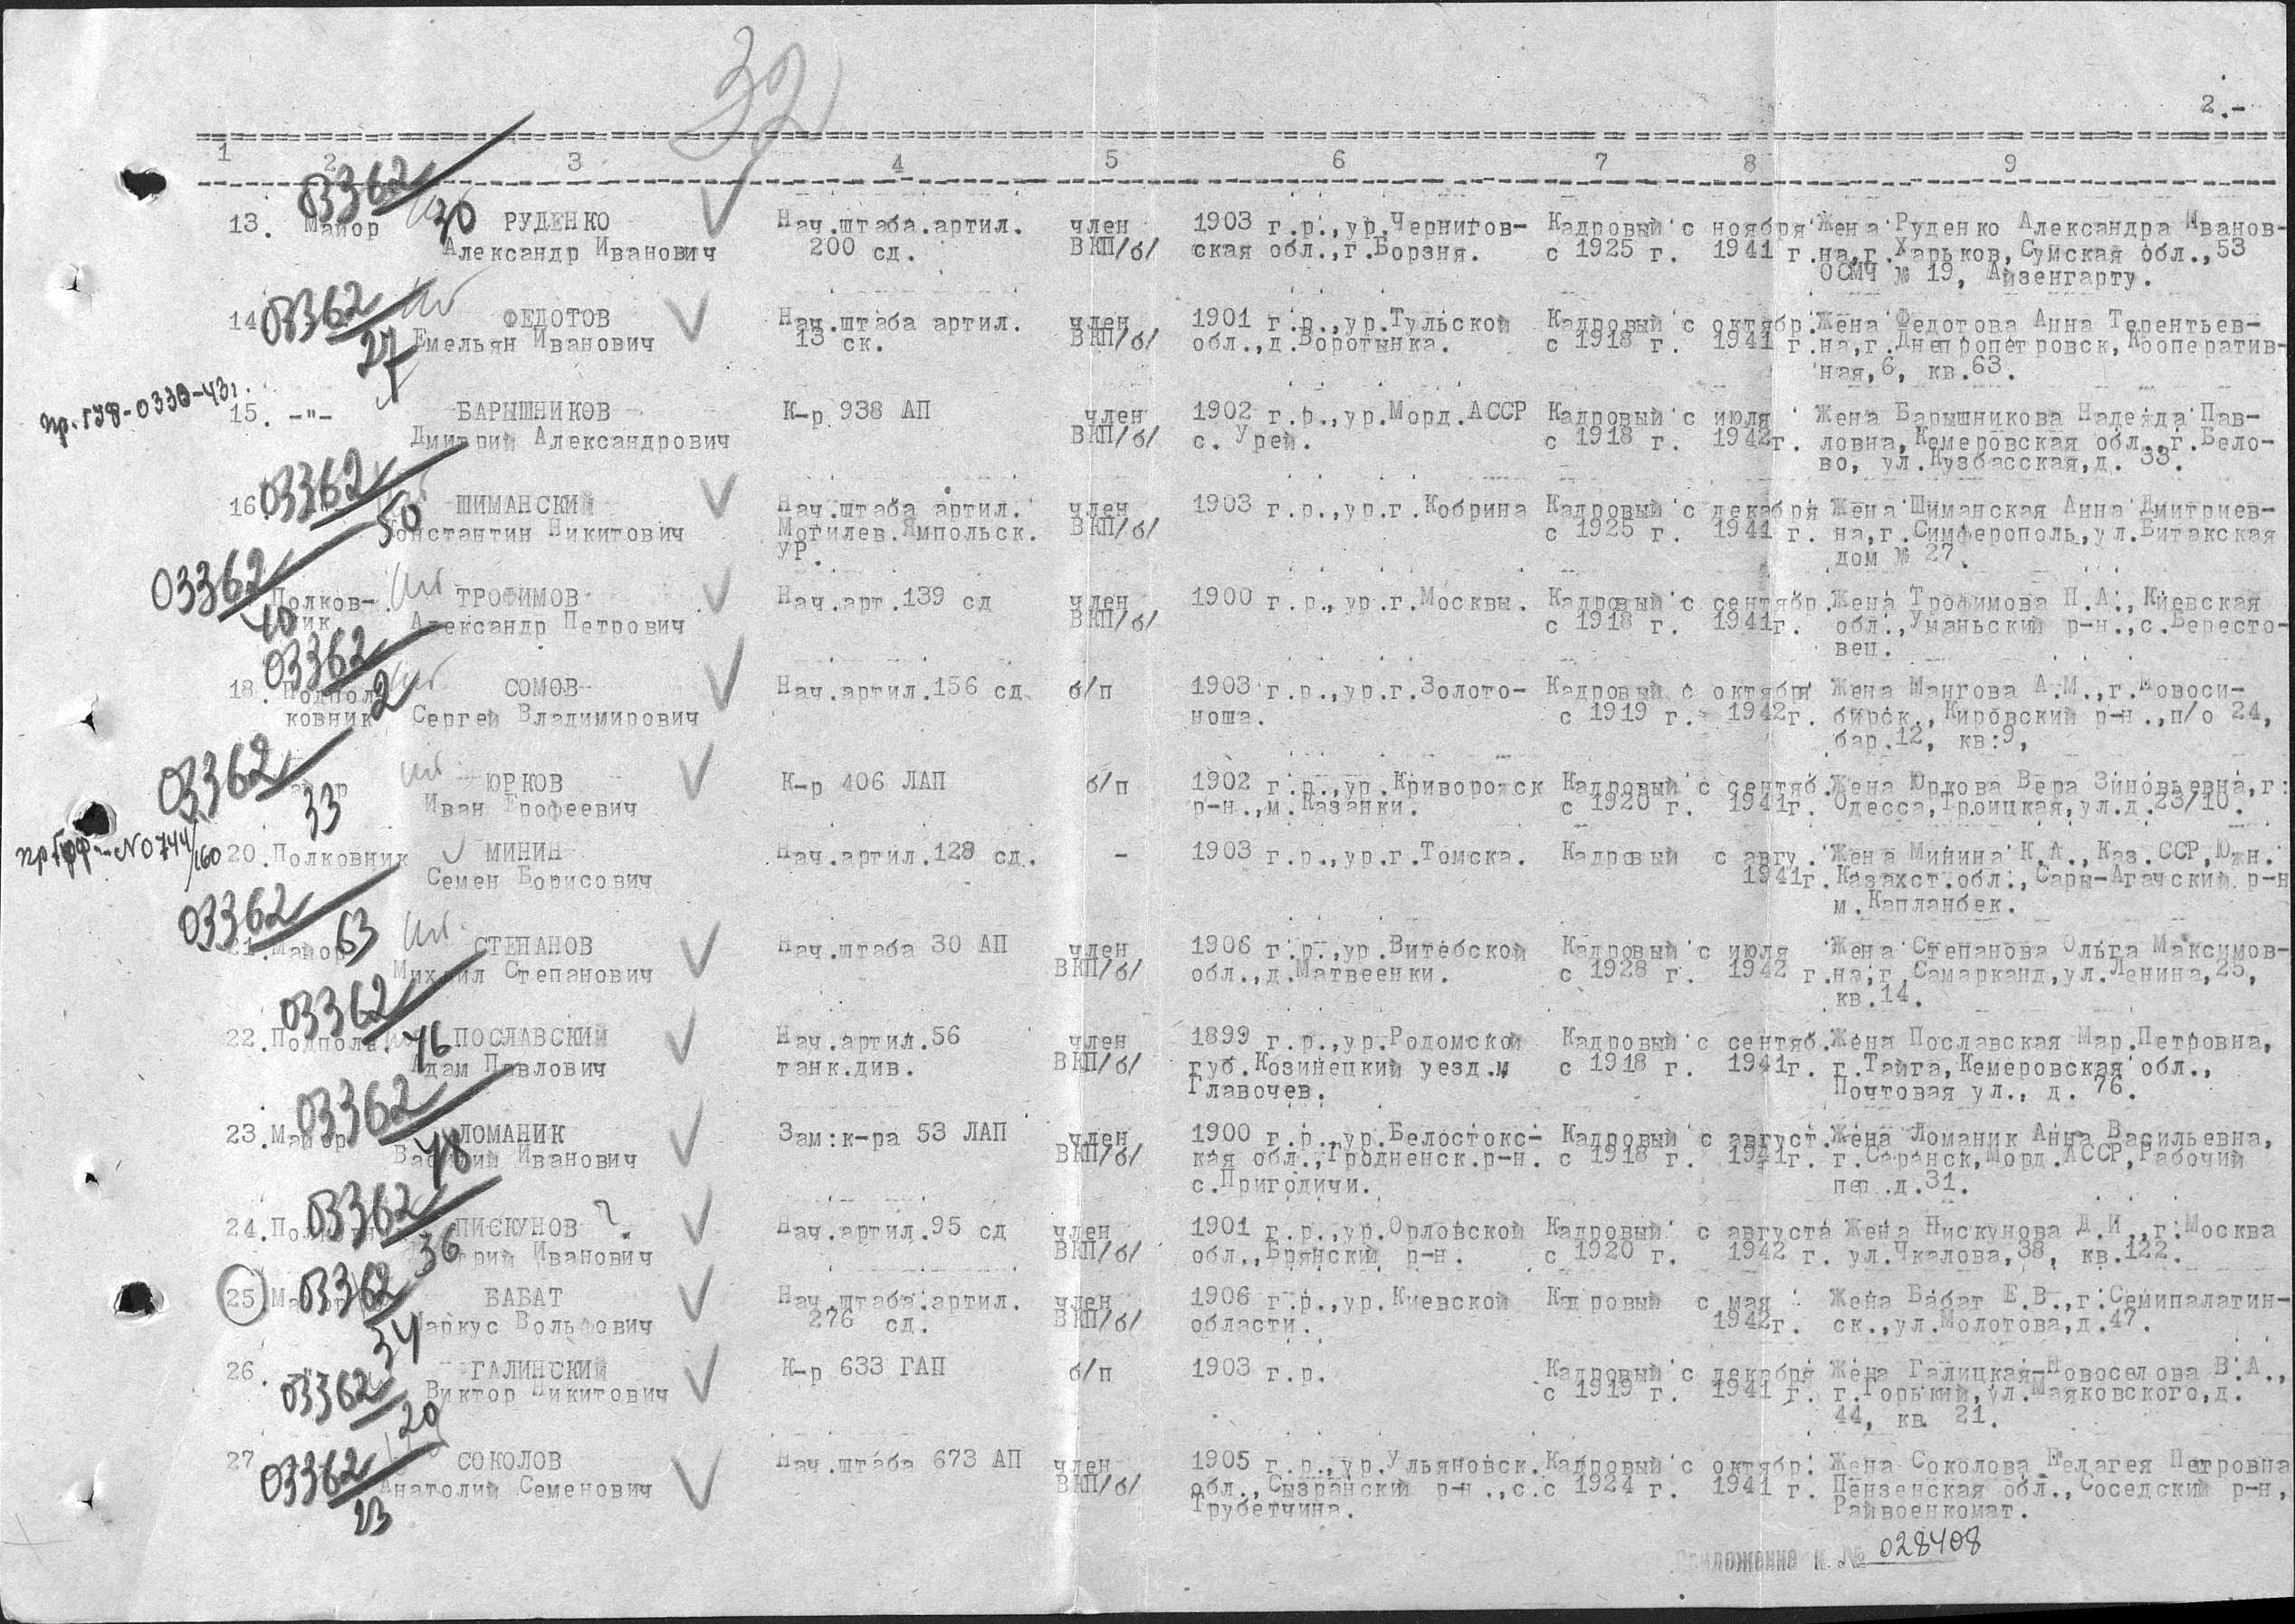 32
2.-
1 2 3 4 5 6 7 8 9
03362/30
13. Майор РУДЕНКО Нач.штаба.артил. член 1903 г.р.,ур.Чернигов- Кадровый с ноября Жена Руденко Александра Иванов-
Александр Иванович 200 сд. ВКП/б/ ская обл.,г.Борзня. с 1925 г. 1941 г. на,г.Харьков,Сумская обл.,53
ОСМЧ № 19, Айзенгарту.
03362/27
14 ФЕДОТОВ Нач.штаба артил. член 1901 г.р.,ур.Тульской Кадровый с октябр. Жена Федотова Анна Терентьев-
Емельян Иванович 13 ск. ВКП/б/ обл.,д.Воротынка. с 1918 г. 1941 г. на,г.Днепропетровск,Кооператив-
ная,6, кв.63.
15. -"- БАРЫШНИКОВ К-р 938 АП член 1902 г.р.,ур.Морд.АССР Кадровый с июля Жена Барышникова Надежда Пав-
Дмитрий Александрович ВКП/б/ с. Урей. с 1918 г. 1942г. ловна,Кемеровская обл.,г.Бело-
во, ул.Кузбасская,д. 33.
03362/50
16 ШИМАНСКИЙ Нач.штаба артил. член 1903 г.р.,ур.г.Кобрина Кадровый с декабря Жена Шиманская Анна Дмитриев-
Константин Никитович Могилев.Ямпольск. ВКП/б/ с 1925 г. 1941 г. на,г.Симферополь,ул.Битакская
УР. дом № 27.
03362/10
Полков- ТРОФИМОВ Нач.арт.139 сд член 1900 г.р.,ур.г.Москвы. Кадровый с сентябр. Жена Трофимова П.А.,Киевская
ник Александр Петрович ВКП/б/ с 1918 г. 1941г. обл.,Уманьский р-н.,с.Бересто-
вец.
03362/2
18. Подпол- СОМОВ Нач.артил.156 сд б/п 1903 г.р.,ур.г.Золото- Кадровый с октября Жена Мангова А.М.,г.Новоси-
ковник Сергей Владимирович ноша. с 1919 г. 1942г. бирск.,Кировский р-н.,п/о 24,
бар.12, кв:9,
03362/33
ЮРКОВ К-р 406 ЛАП б/п 1902 г.р.,ур.Криворожск Кадровый с сентяб. Жена Юркова Вера Зиновьевна,г:
Иван Ерофеевич р-н.,м.Казанки. с 1920 г. 1941г. Одесса,Троицкая,ул.д.23/10.
№0744/160
20.Полковник МИНИН Нач.артил.128 сд. - 1903 г.р.,ур.г.Томска. Кадровый с авгу. Жена Минина К.А.,Каз.ССР,Южн.
Семен Борисович 1941г. Казахст.обл.,Сары-Агачский р-н
м.Капланбек.
03362/63
21.Майор СТЕПАНОВ Нач.штаба 30 АП член 1906 г.р.,ур.Витебской Кадровый с июля Жена Степанова Ольга Максимов-
Михаил Степанович ВКП/б/ обл.,д.Матвеенки. с 1928 г. 1942 г. на,г.Самарканд,ул.Ленина,25,
кв.14.
03362/46
22.Подполк. ПОСЛАВСКИЙ Нач.артил.56 член 1899 г.р.,ур.Родомской Кадровый с сентяб. Жена Пославская Мар.Петровна,
Адам Павлович танк.див. ВКП/б/ губ.Козинецкий уезд.м с 1918 г. 1941г. г.Тайга,Кемеровская обл.,
Главочев. Почтовая ул., д. 76.
03362/48
23.Майор ЛОМАНИК Зам:к-ра 53 ЛАП член 1900 г.р.,ур.Белостокс- Кадровый с август. Жена Ломаник Анна Васильевна,
Василий Иванович ВКП/б/ кая обл.,Гродненск.р-н. с 1918 г. 1941г. г.Саранск,Морд.АССР,Рабочий
с.Пригодичи. пер.д.31.
03362/36
24. ПИСКУНОВ ? Нач.артил.95 сд член 1901 г.р.,ур.Орловской Кадровый с августа Жена Пискунова Д.И.,г:Москва
Иванович ВКП/б/ обл.,Брянский р-н. с 1920 г. 1942 г. ул.Чкалова,38, кв.122.
03362/34
25.Майор БАБАТ Нач.штаба артил. член 1906 г.р.,ур.Киевской Кадровый с мая Жена Бабат Е.В.,г:Семипалатин-
Маркус Вольфович 276 сд. ВКП/б/ области. 1942г. ск.,ул.Молотова,д.47.
26. ГАЛИНСКИЙ К-р 633 ГАП б/п 1903 г.р. Кадровый с декабря Жена Галицкая-Новоселова В.А.,
03362/20
Виктор Никитович с 1919 г. 1941 г. г.Горький,ул.Маяковского,д.
44, кв. 21.
27 СОКОЛОВ Нач.штаба 673 АП член 1905 г.р.,ур.Ульяновск. Кадровый с октябр. Жена Соколова Пелагея Петровна
03362/23
Анатолий Семенович ВКП/б/ обл.,Сызранский р-н.,с. с 1924 г. 1941 г. Пензенская обл.,Соседский р-н,
Трубетчина. Райвоенкомат.
Приложение к № 028408